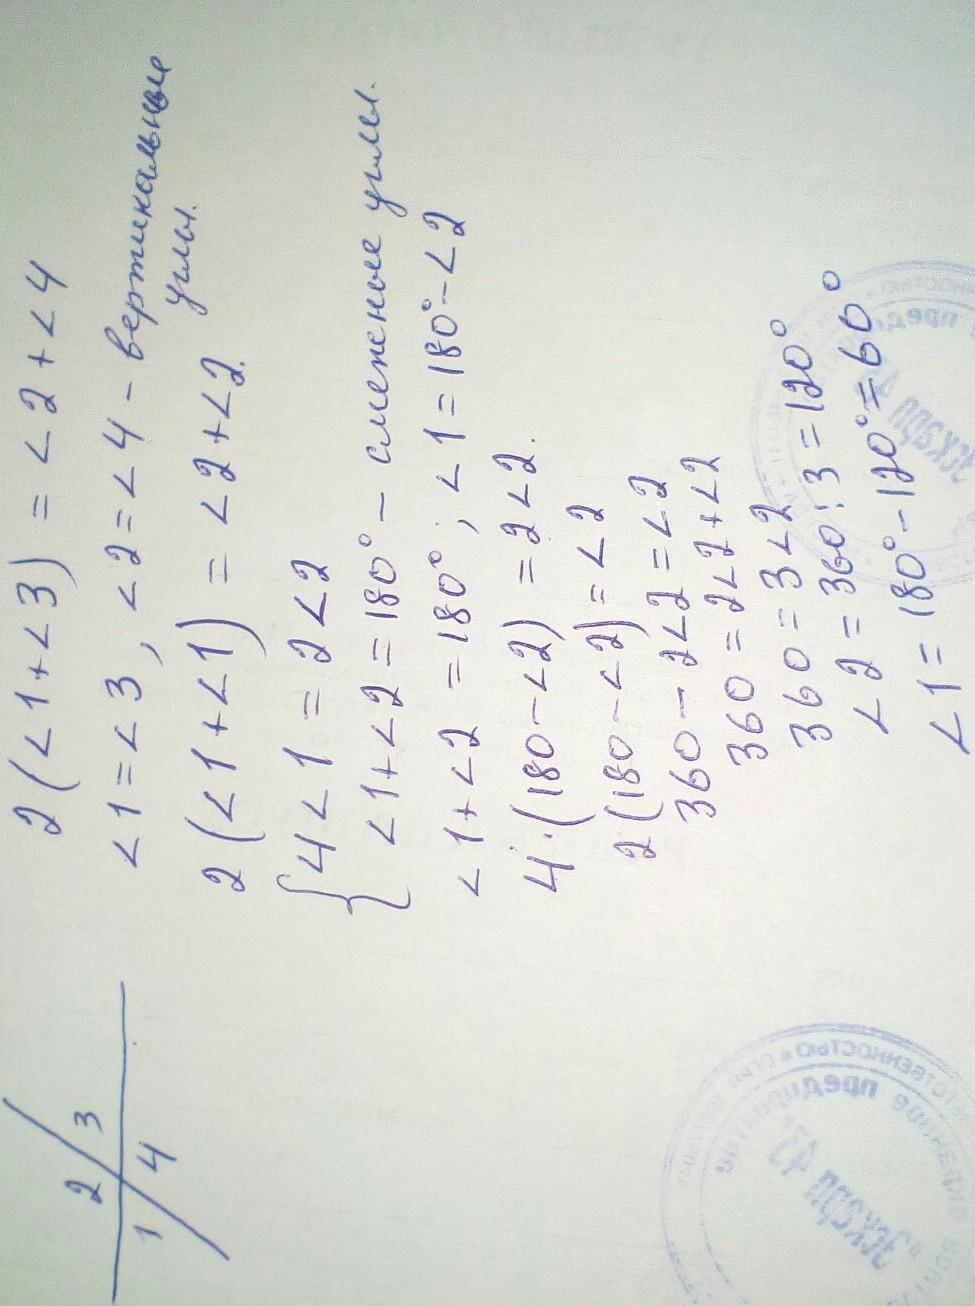 2 3
1 4
2(∠1+∠3) = ∠2+∠4
∠1=∠3, ∠2=∠4 - вертикальные
углы.
2(∠1+∠1) = ∠2+∠2.
{ 4∠1 = 2∠2
∠1+∠2=180° - смежные углы.
∠1+∠2 = 180°, ∠1=180°-∠2
4·(180-∠2) = 2∠2.
2(180-∠2)=∠2
360-2∠2=∠2
360=2∠2+∠2
360=3∠2
∠2=360:3=120°
∠1= 180°-120°=60°